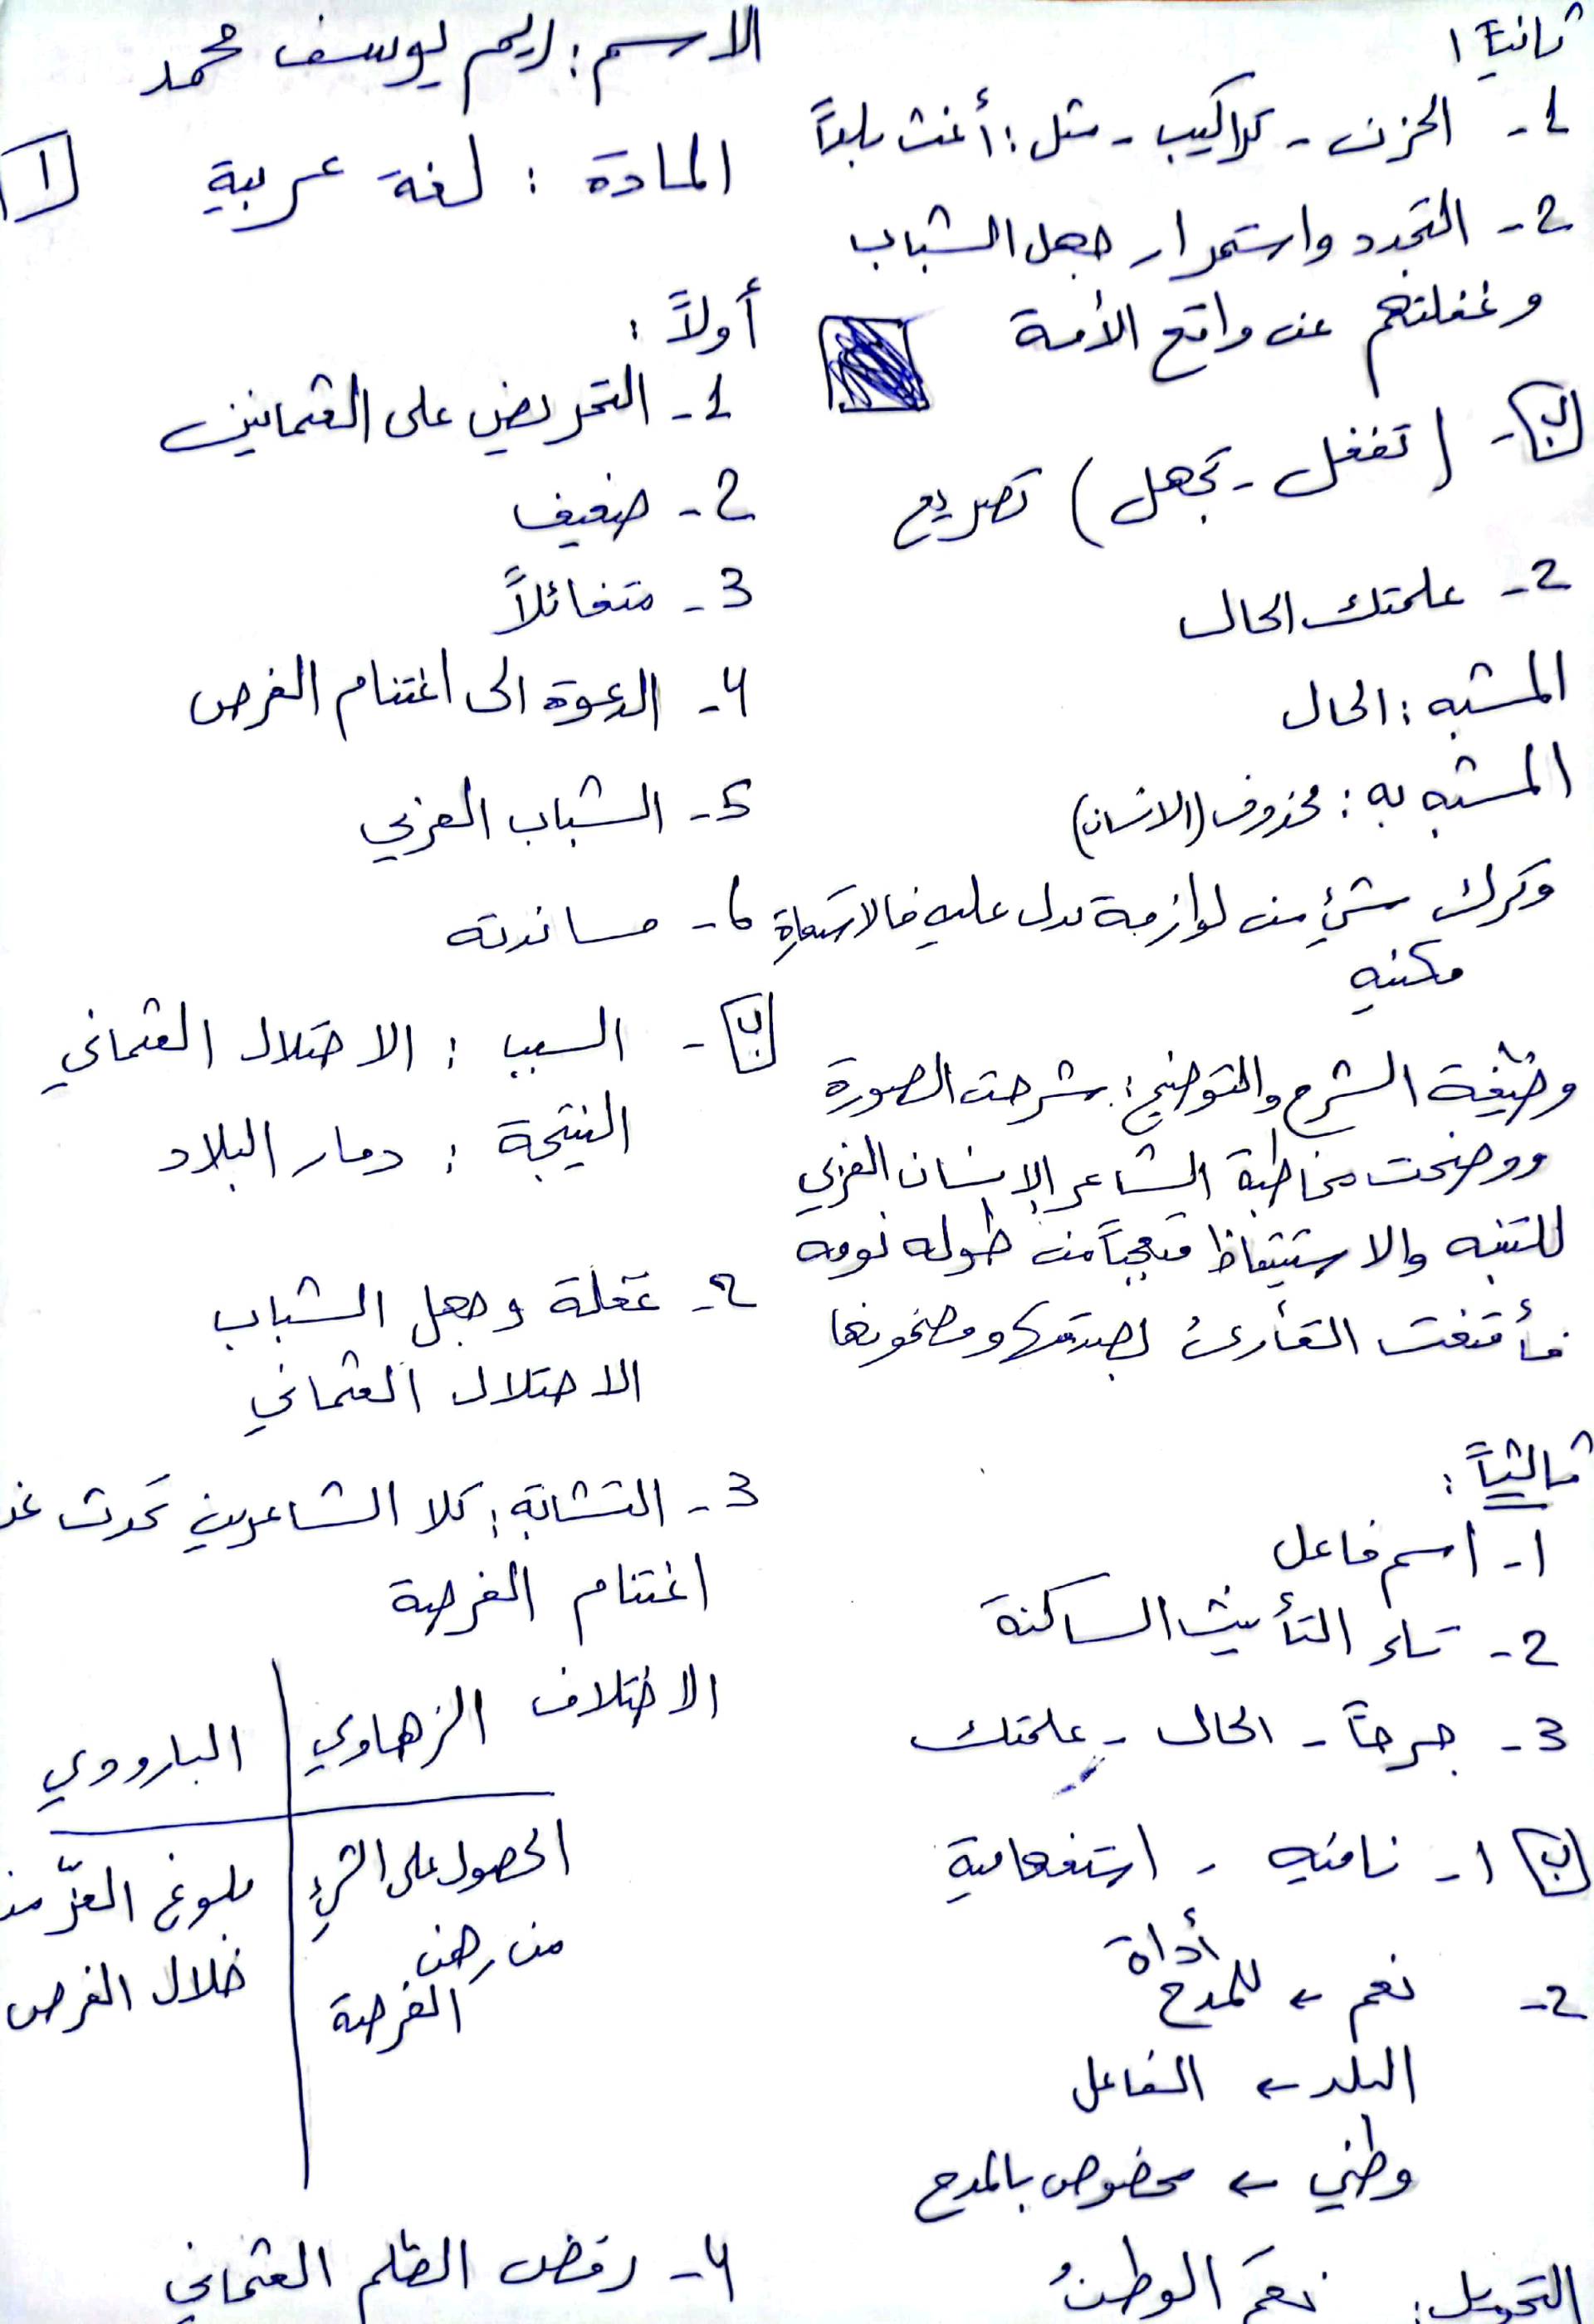 الاسم : ريم يوسف محمد
المادة : لغة عربية
١
أولاً :
1- التحريض على العثمانيين
2- ضعيف
3- متفائلاً
4- الدعوة الى اغتنام الفرص
5- الشباب العربي
6- مساندته
ب- السبب : الاحتلال العثماني
النتيجة : دمار البلاد
2- غفلة وجهل الشباب
الاحتلال العثماني
3- التشابه : كلا الشاعرين تحدث عن
اغتنام الفرصة
الاختلاف
الزهاوي | البارودي
الحصول على الشيء | بلوغ العزّ من
من رهن | خلال الفرص
الفرصة
4- رفض الظلم العثماني
ثانياً
1- الحزن - تراكيب - مثل : أغثت بلداً
2- التجدد واستمرار جهل الشباب
وغفلتهم عن واقع الأمة
ب- ( تغفل - تجهل ) تصريع
2- علمتك الحال
المشبه : الحال
المشبه به : محذوف (الانسان)
وترك شيء من لوازمة تدل عليه فالاستعارة
مكنيه
وظيفة الشرح والتوضيح : شرحت الصورة
ووضحت مخاطبة الشاعر الإنسان العربي
للتنبه والاستيقاظ متعجباً من طوله نومه
فأقنعت القارئ بصدقها ومضمونها
ثالثاً :
1- اسم فاعل
2- تاء التأنيث الساكنة
3- جرحاً - الحال - علمتك
ب 1- نافيه - استفهامية
2- نعم ← أداة للمدح
البلد ← الفاعل
وطني ← مخصوص بالمدح
التحويل : نعمَ الوطنُ